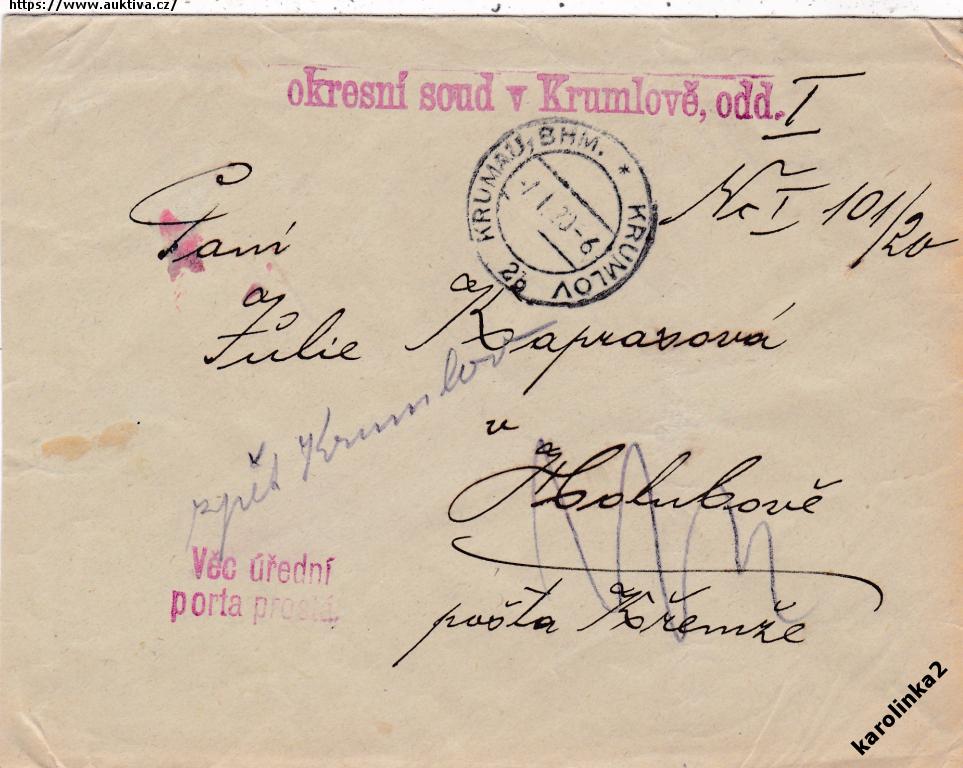 https://www.auktiva.cz/
okresní soud v Krumlově, odd. I
KRUMAU, BHM. * KRUMLOV 2b
Nc I 101/20
Paní
Julie Kaprasová
zpět Krumlov
v
Holubově
Věc úřední
porta prostá.
pošta Křemže
karolinka2